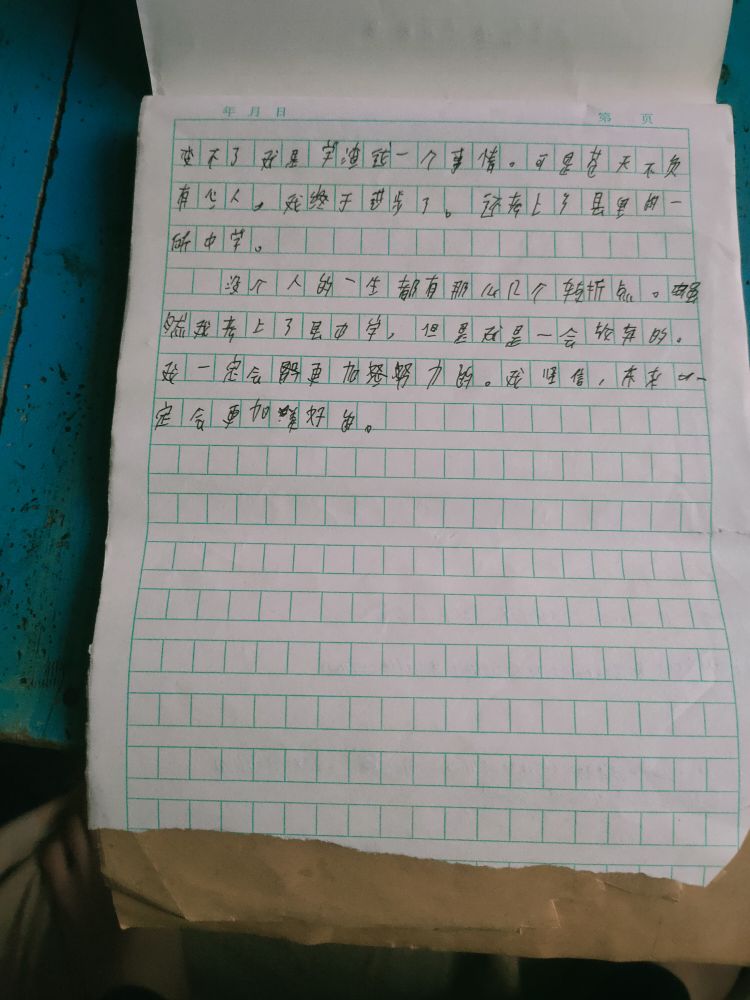 年 月 日
第 页
变不了我是学渣这一个事情。可是苍天不负
有心人，我终于进步了。还考上了县里的一
所中学。
没个人的一生都有那么几个转折点。虽
然我考上了县中学，但是我是一会软弃的。
我一定会更加努力的。我坚信，未来一
定会更加美好的。